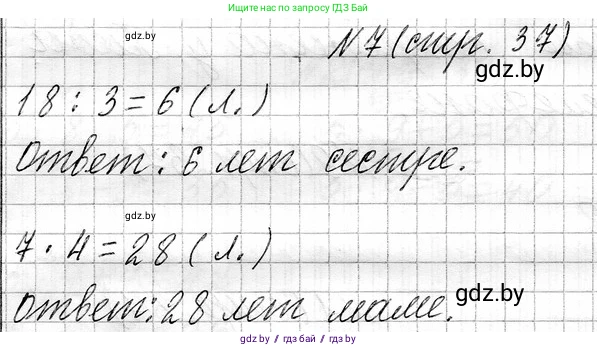 Ищите нас по запросу ГДЗ Бай
gdz.by
№7 (стр. 37)
gdz.by
18 : 3 = 6 (л.)
Ответ: 6 лет сестре.
gdz.by
7 · 4 = 28 (л.)
Ответ: 28 лет маме.
gdz.by
gdz.by / гдз бай / gdz.by